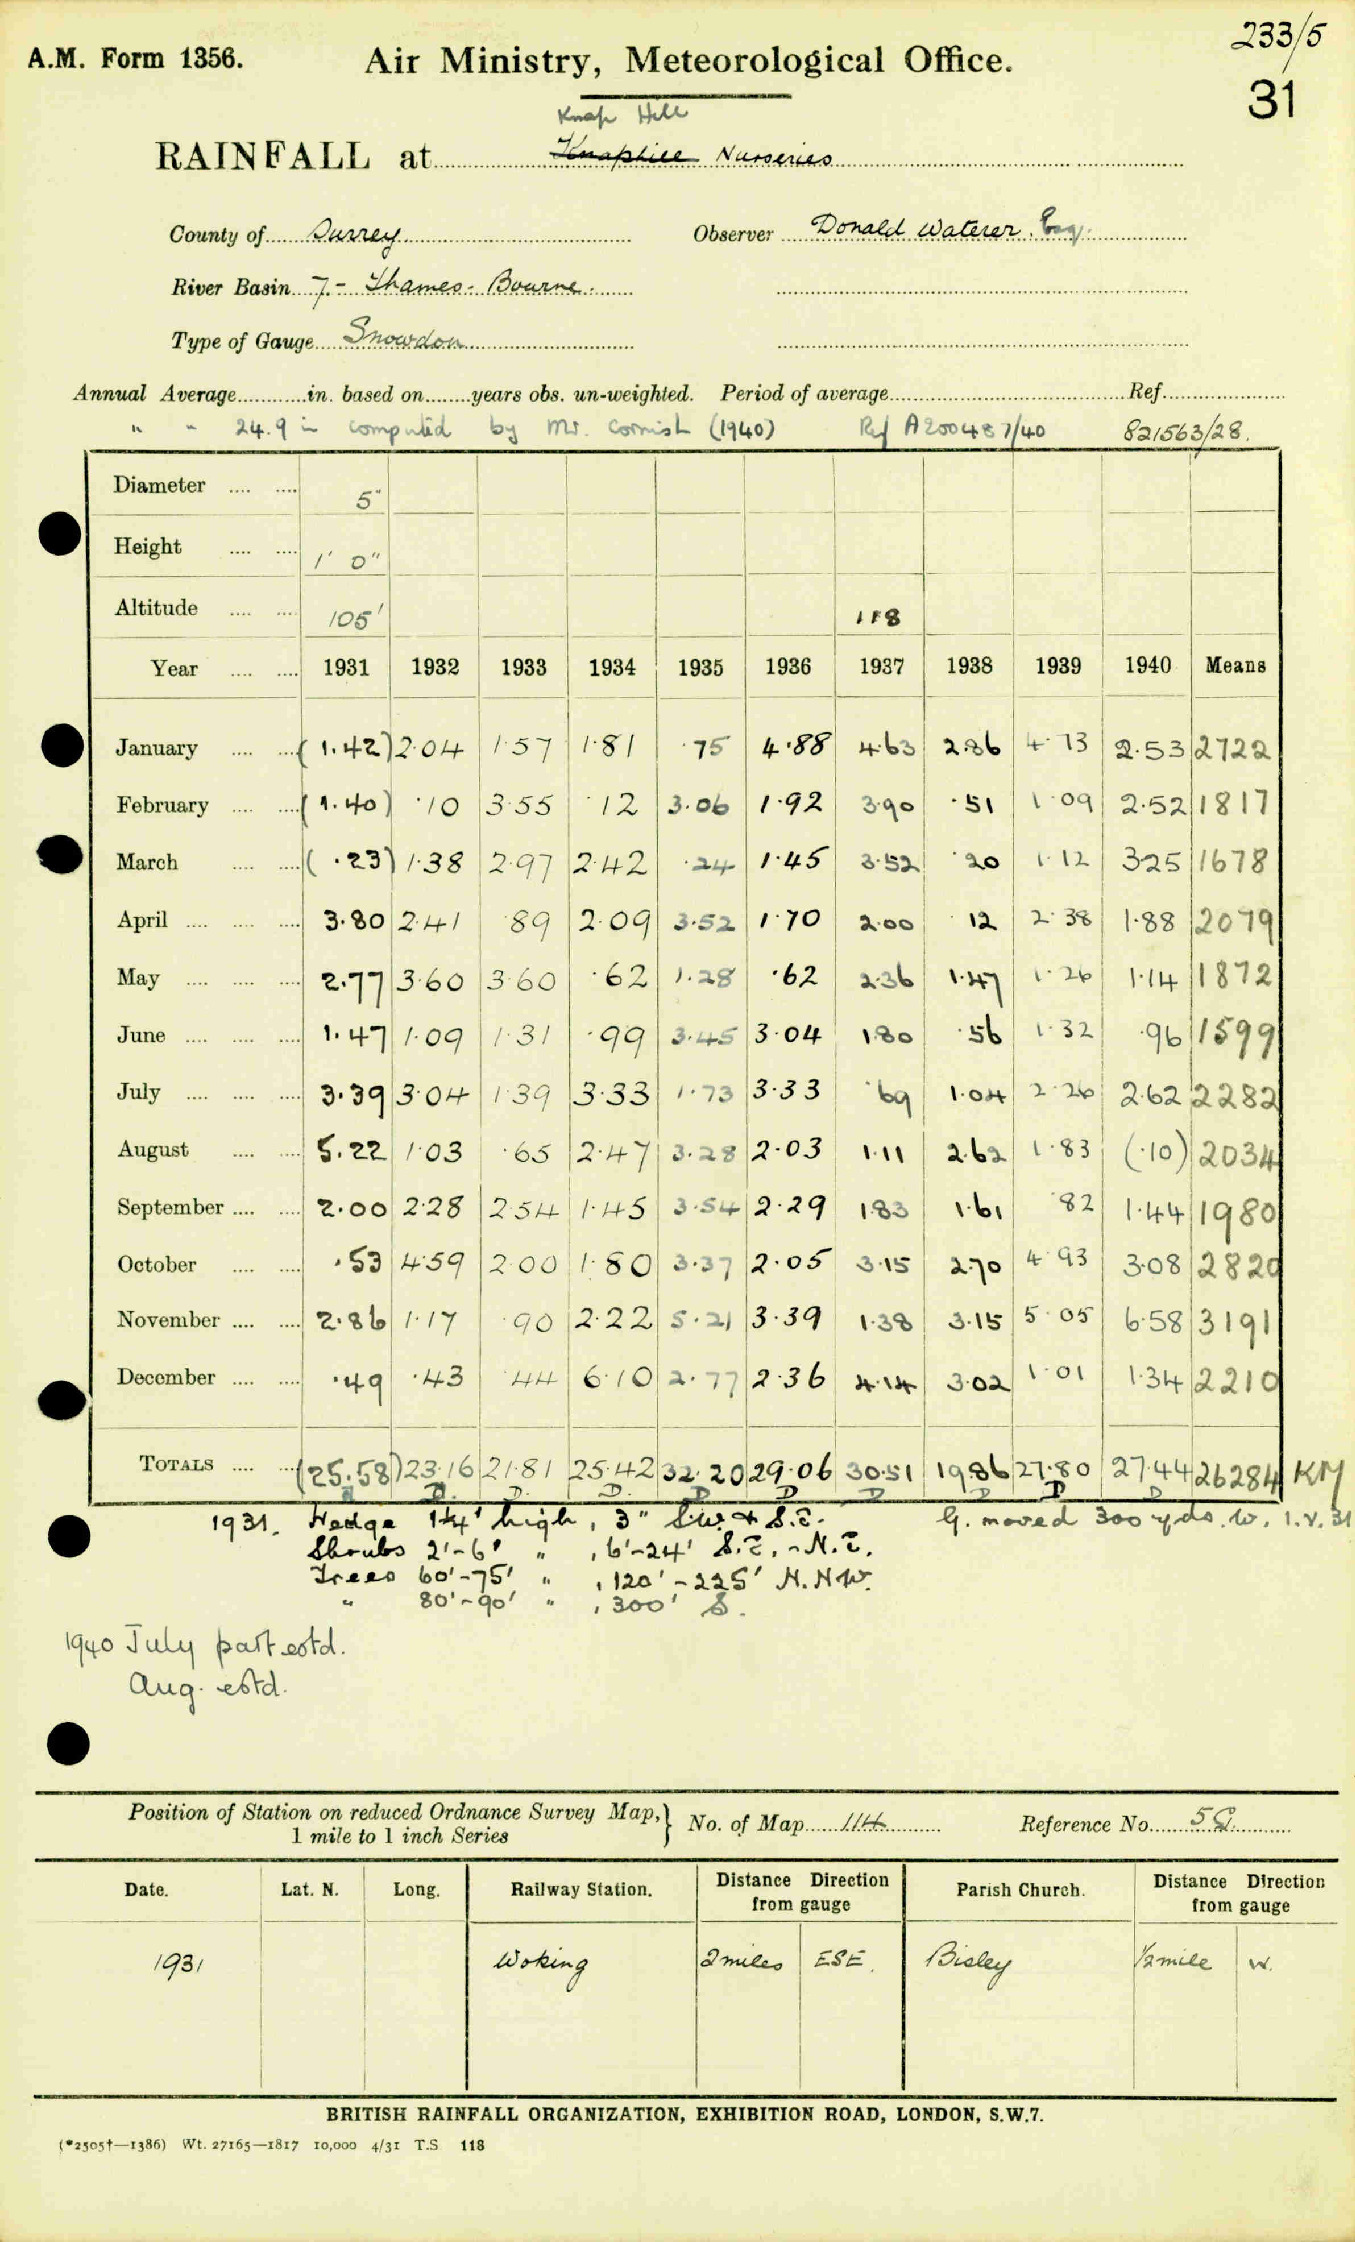 233/5
A.M. Form 1356. Air Ministry, Meteorological Office. 31
Knap Hill
RAINFALL at Knaphill Nurseries
County of Surrey Observer Donald Waterer. Esq.
River Basin 7.- Thames - Bourne.
Type of Gauge Snowdon
Annual Average in. based on years obs. un-weighted. Period of average Ref.
" " 24.9 in computed by Mr. Cornish (1940) Ref A200487/40 821563/28.
Diameter 5"
Height 1' 0"
Altitude 105' 118
Year 1931 1932 1933 1934 1935 1936 1937 1938 1939 1940 Means
January (1.42) 2.04 1.57 1.81 .75 4.88 4.63 2.86 4.73 2.53 2722
February (1.40) .10 3.55 .12 3.06 1.92 3.90 .51 1.09 2.52 1817
March (.23) 1.38 2.97 2.42 .24 1.45 3.52 .20 1.12 3.25 1678
April 3.80 2.41 .89 2.09 3.52 1.70 2.00 .12 2.38 1.88 2079
May 2.77 3.60 3.60 .62 1.28 .62 2.36 1.47 1.26 1.14 1872
June 1.47 1.09 1.31 .99 3.45 3.04 1.80 .56 1.32 .96 1599
July 3.39 3.04 1.39 3.33 1.73 3.33 .69 1.04 2.26 2.62 2282
August 5.22 1.03 .65 2.47 3.28 2.03 1.11 2.62 1.83 (.10) 2034
September 2.00 2.28 2.54 1.45 3.54 2.29 1.83 1.61 .82 1.44 1980
October .53 4.59 2.00 1.80 3.37 2.05 3.15 2.70 4.93 3.08 2820
November 2.86 1.17 .90 2.22 5.21 3.39 1.38 3.15 5.05 6.58 3191
December .49 .43 .44 6.10 2.77 2.36 4.14 3.02 1.01 1.34 2210
TOTALS (25.58) 23.16 21.81 25.42 32.20 29.06 30.51 19.86 27.80 27.44 26284 KM
D. D. D. D D D D D D
1931. Hedge 1¼' high, 3" S.W. & S.E. G. moved 300 yds. W. 1.V.31
Shrubs 2'-6' " , 6'-24' S.E. - N.E.
Trees 60'-75' " , 120'-225' N.NW.
" 80'-90' " , 300' S.
1940 July part estd.
Aug. estd.
Position of Station on reduced Ordnance Survey Map,} No. of Map 114 Reference No. 5G
1 mile to 1 inch Series
Date. Lat. N. Long. Railway Station. Distance Direction from gauge Parish Church. Distance Direction from gauge
1931 Woking 2 miles ESE. Bisley ½ mile W.
BRITISH RAINFALL ORGANIZATION, EXHIBITION ROAD, LONDON, S.W.7.
(*2505†—1386) Wt. 27165—1817 10,000 4/31 T.S 118